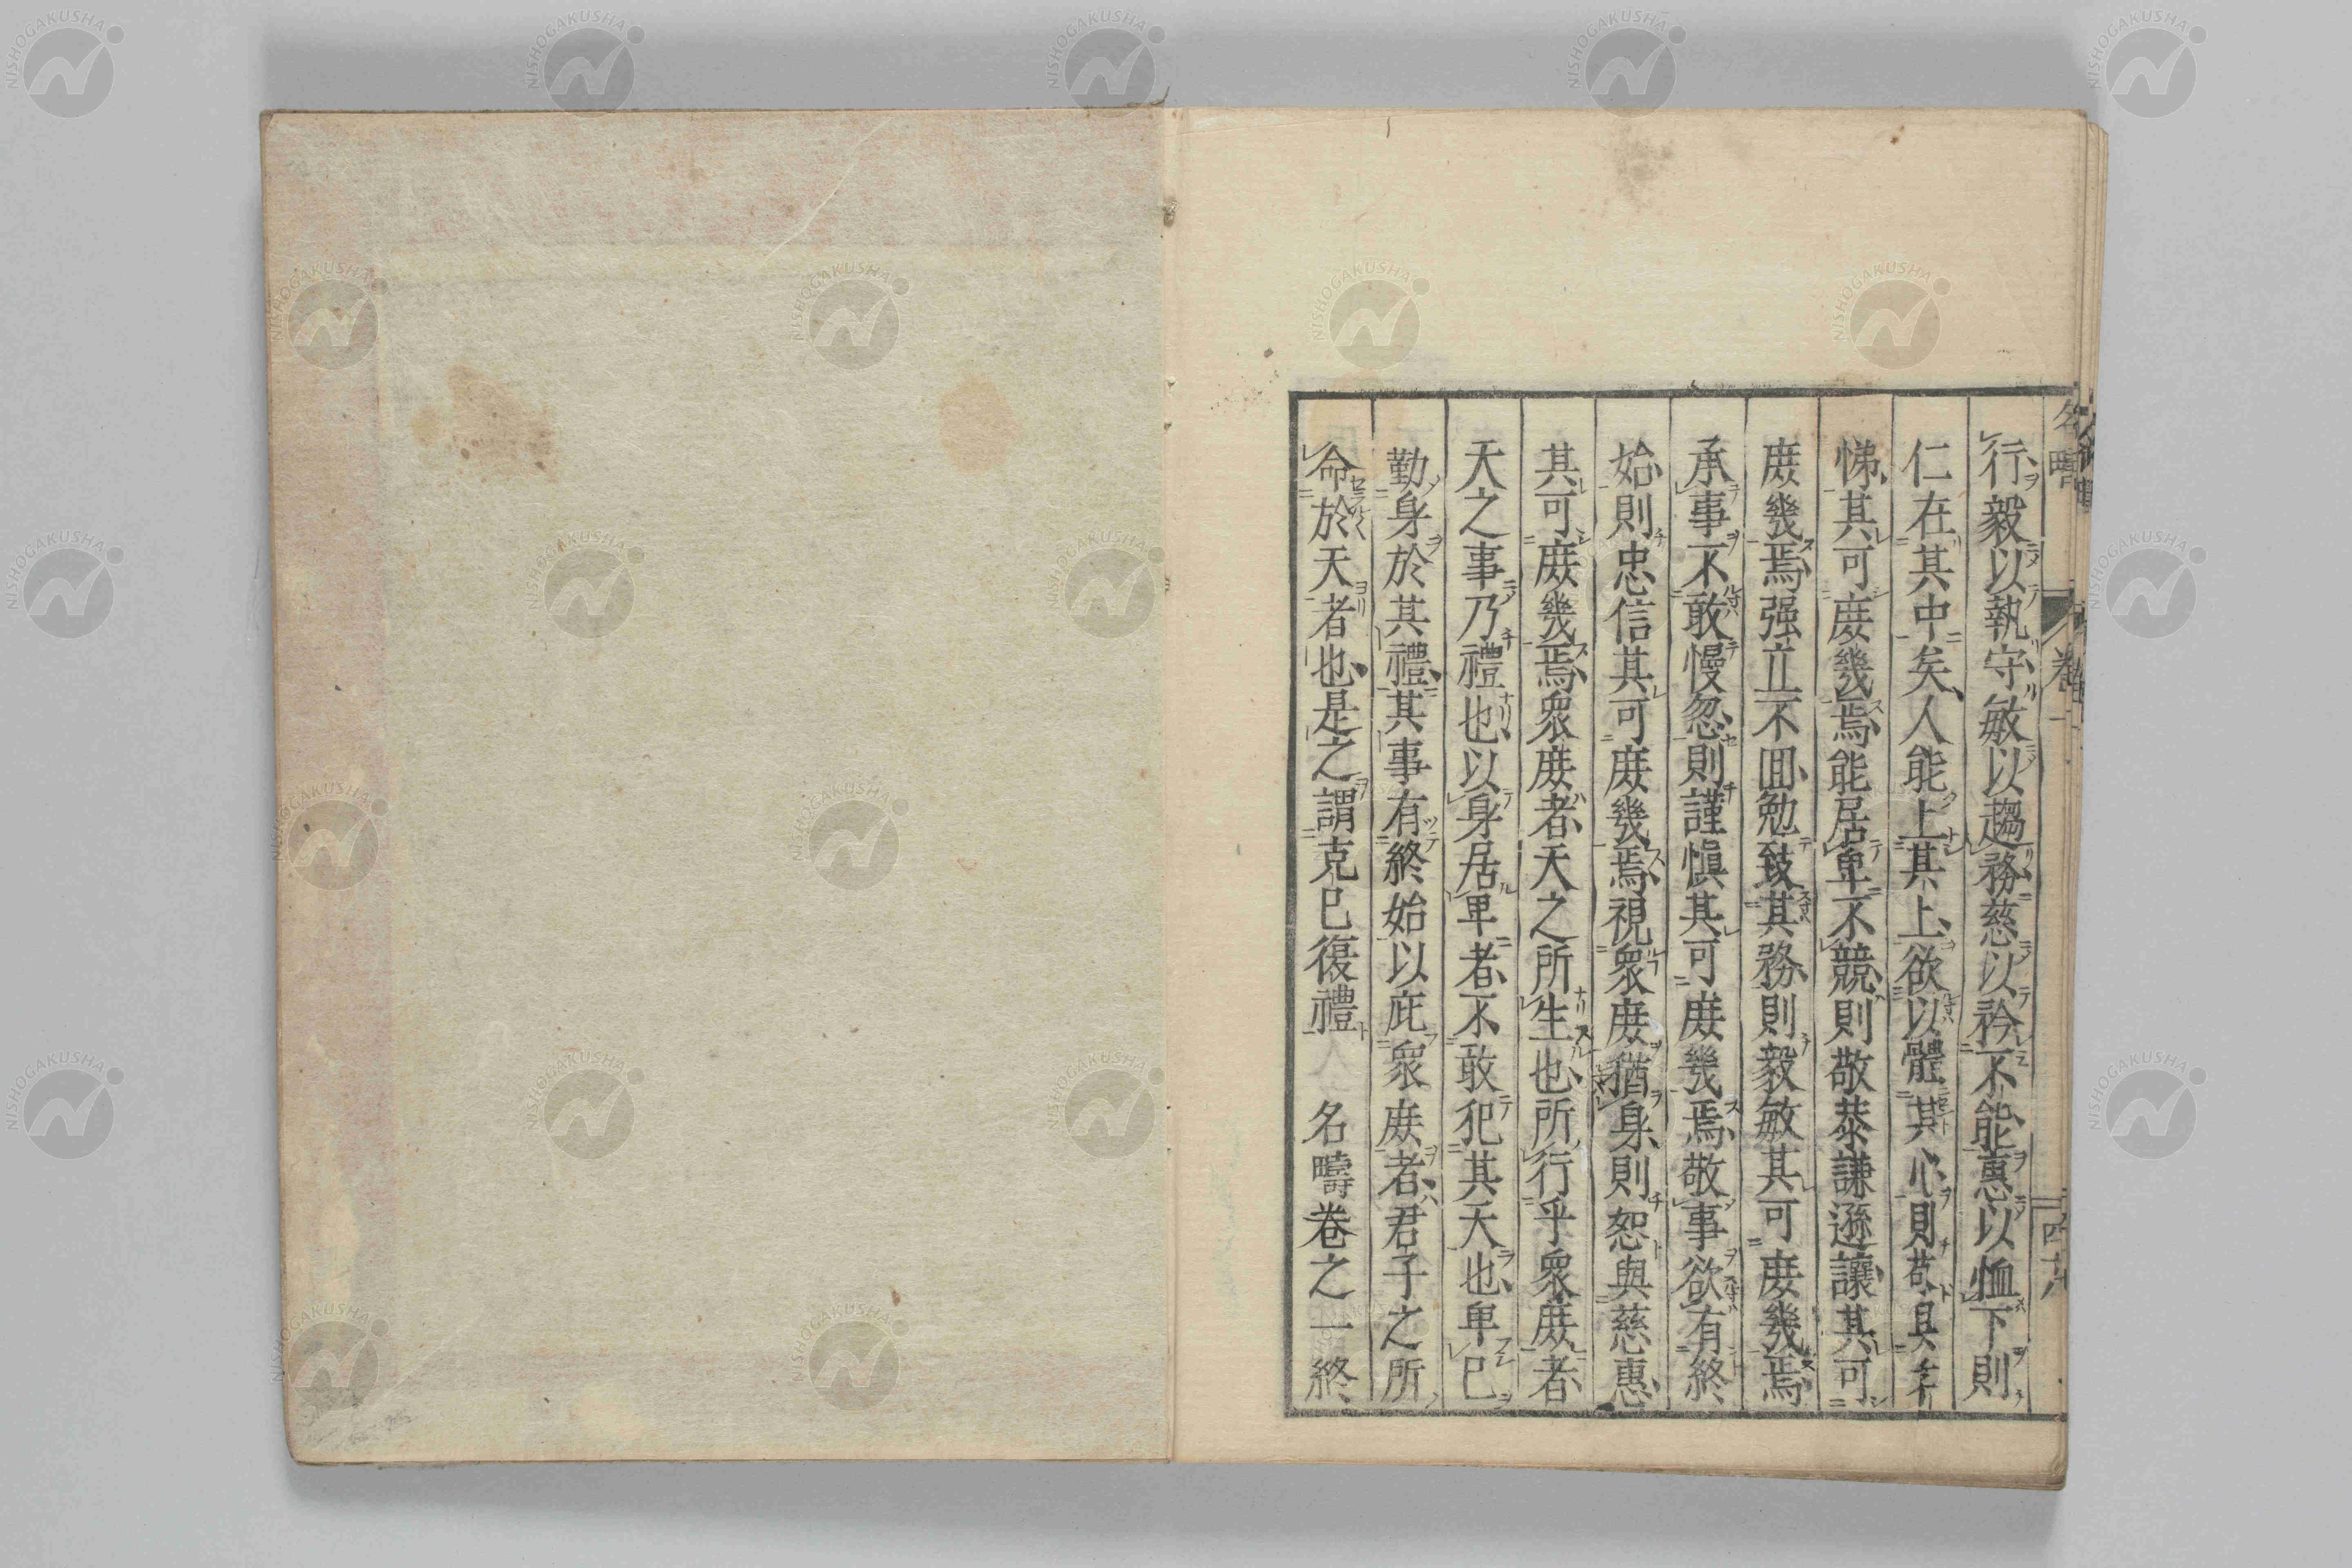 行毅以執守敏以趨務慈以矜不能惠以恤下則
仁在其中矣人能上其上欲以體其心則孝
悌其可庶幾焉能居卑不競則敬恭謙遜讓其可
庶幾焉强立不回勉致其務則毅敏其可庶幾焉
承事不敢慢忽則謹愼其可庶幾焉敬事欲有終
始則忠信其可庶幾焉視衆庶猶身則恕與慈惠
其可庶幾焉衆庶者天之所生也所行乎衆庶者
天之事乃禮也以身居卑者不敢犯其天也卑己
勤身於其禮其事有終始以庇衆庶者君子之所
命於天者也是之謂克己復禮
名疇卷之一終
名疇
卷一
四十
NISHOGAKUSHA